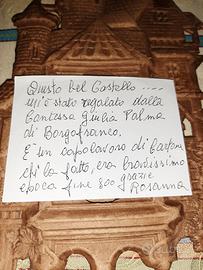 Questo bel Castello ....
mi è stato regalato dalla
Contessa Giulia Palma
di Borgofranco.
È un capolavoro di
chi lo fatto, era bravissimo
epoca fine 800 grazie
Rosanna